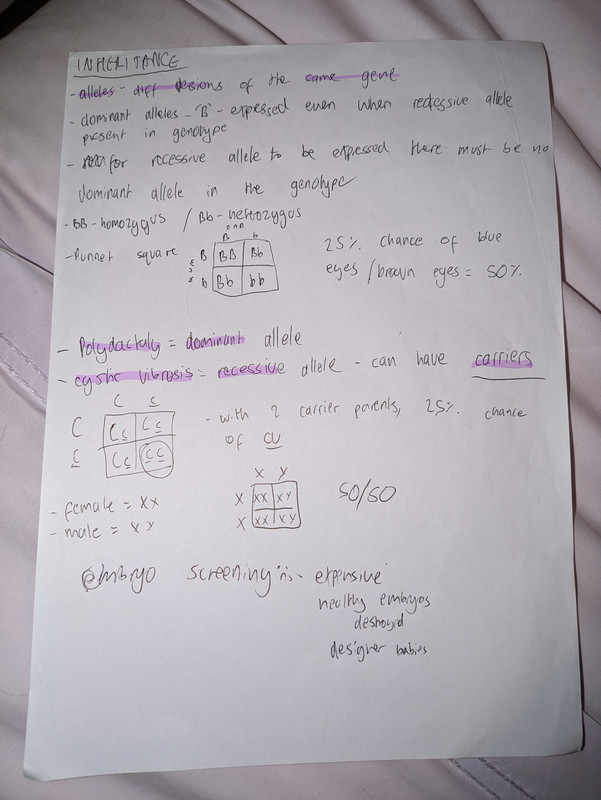 INHERITANCE
- alleles - diff versions of the same gene
- dominant alleles - 'B' - expressed even when recessive allele
present in genotype
- for recessive allele to be expressed there must be no
dominant allele in the genotype
- BB - homozygus / Bb - hetrozygus
- Punnet square
B b
B BB Bb
b Bb bb
25% chance of blue
eyes / brown eyes = 50%
- Polydactaly = dominant allele
- cystic vibrosis = recessive allele - can have carriers
C c
C Cc Cc
c Cc cc
- with 2 carrier parents, 25% chance
of CV
- female = XX
- male = XY
X Y
X XX XY
X XX XY
50/50
Embryo screening is - expensive
healthy embryos
destroyed
designer babies